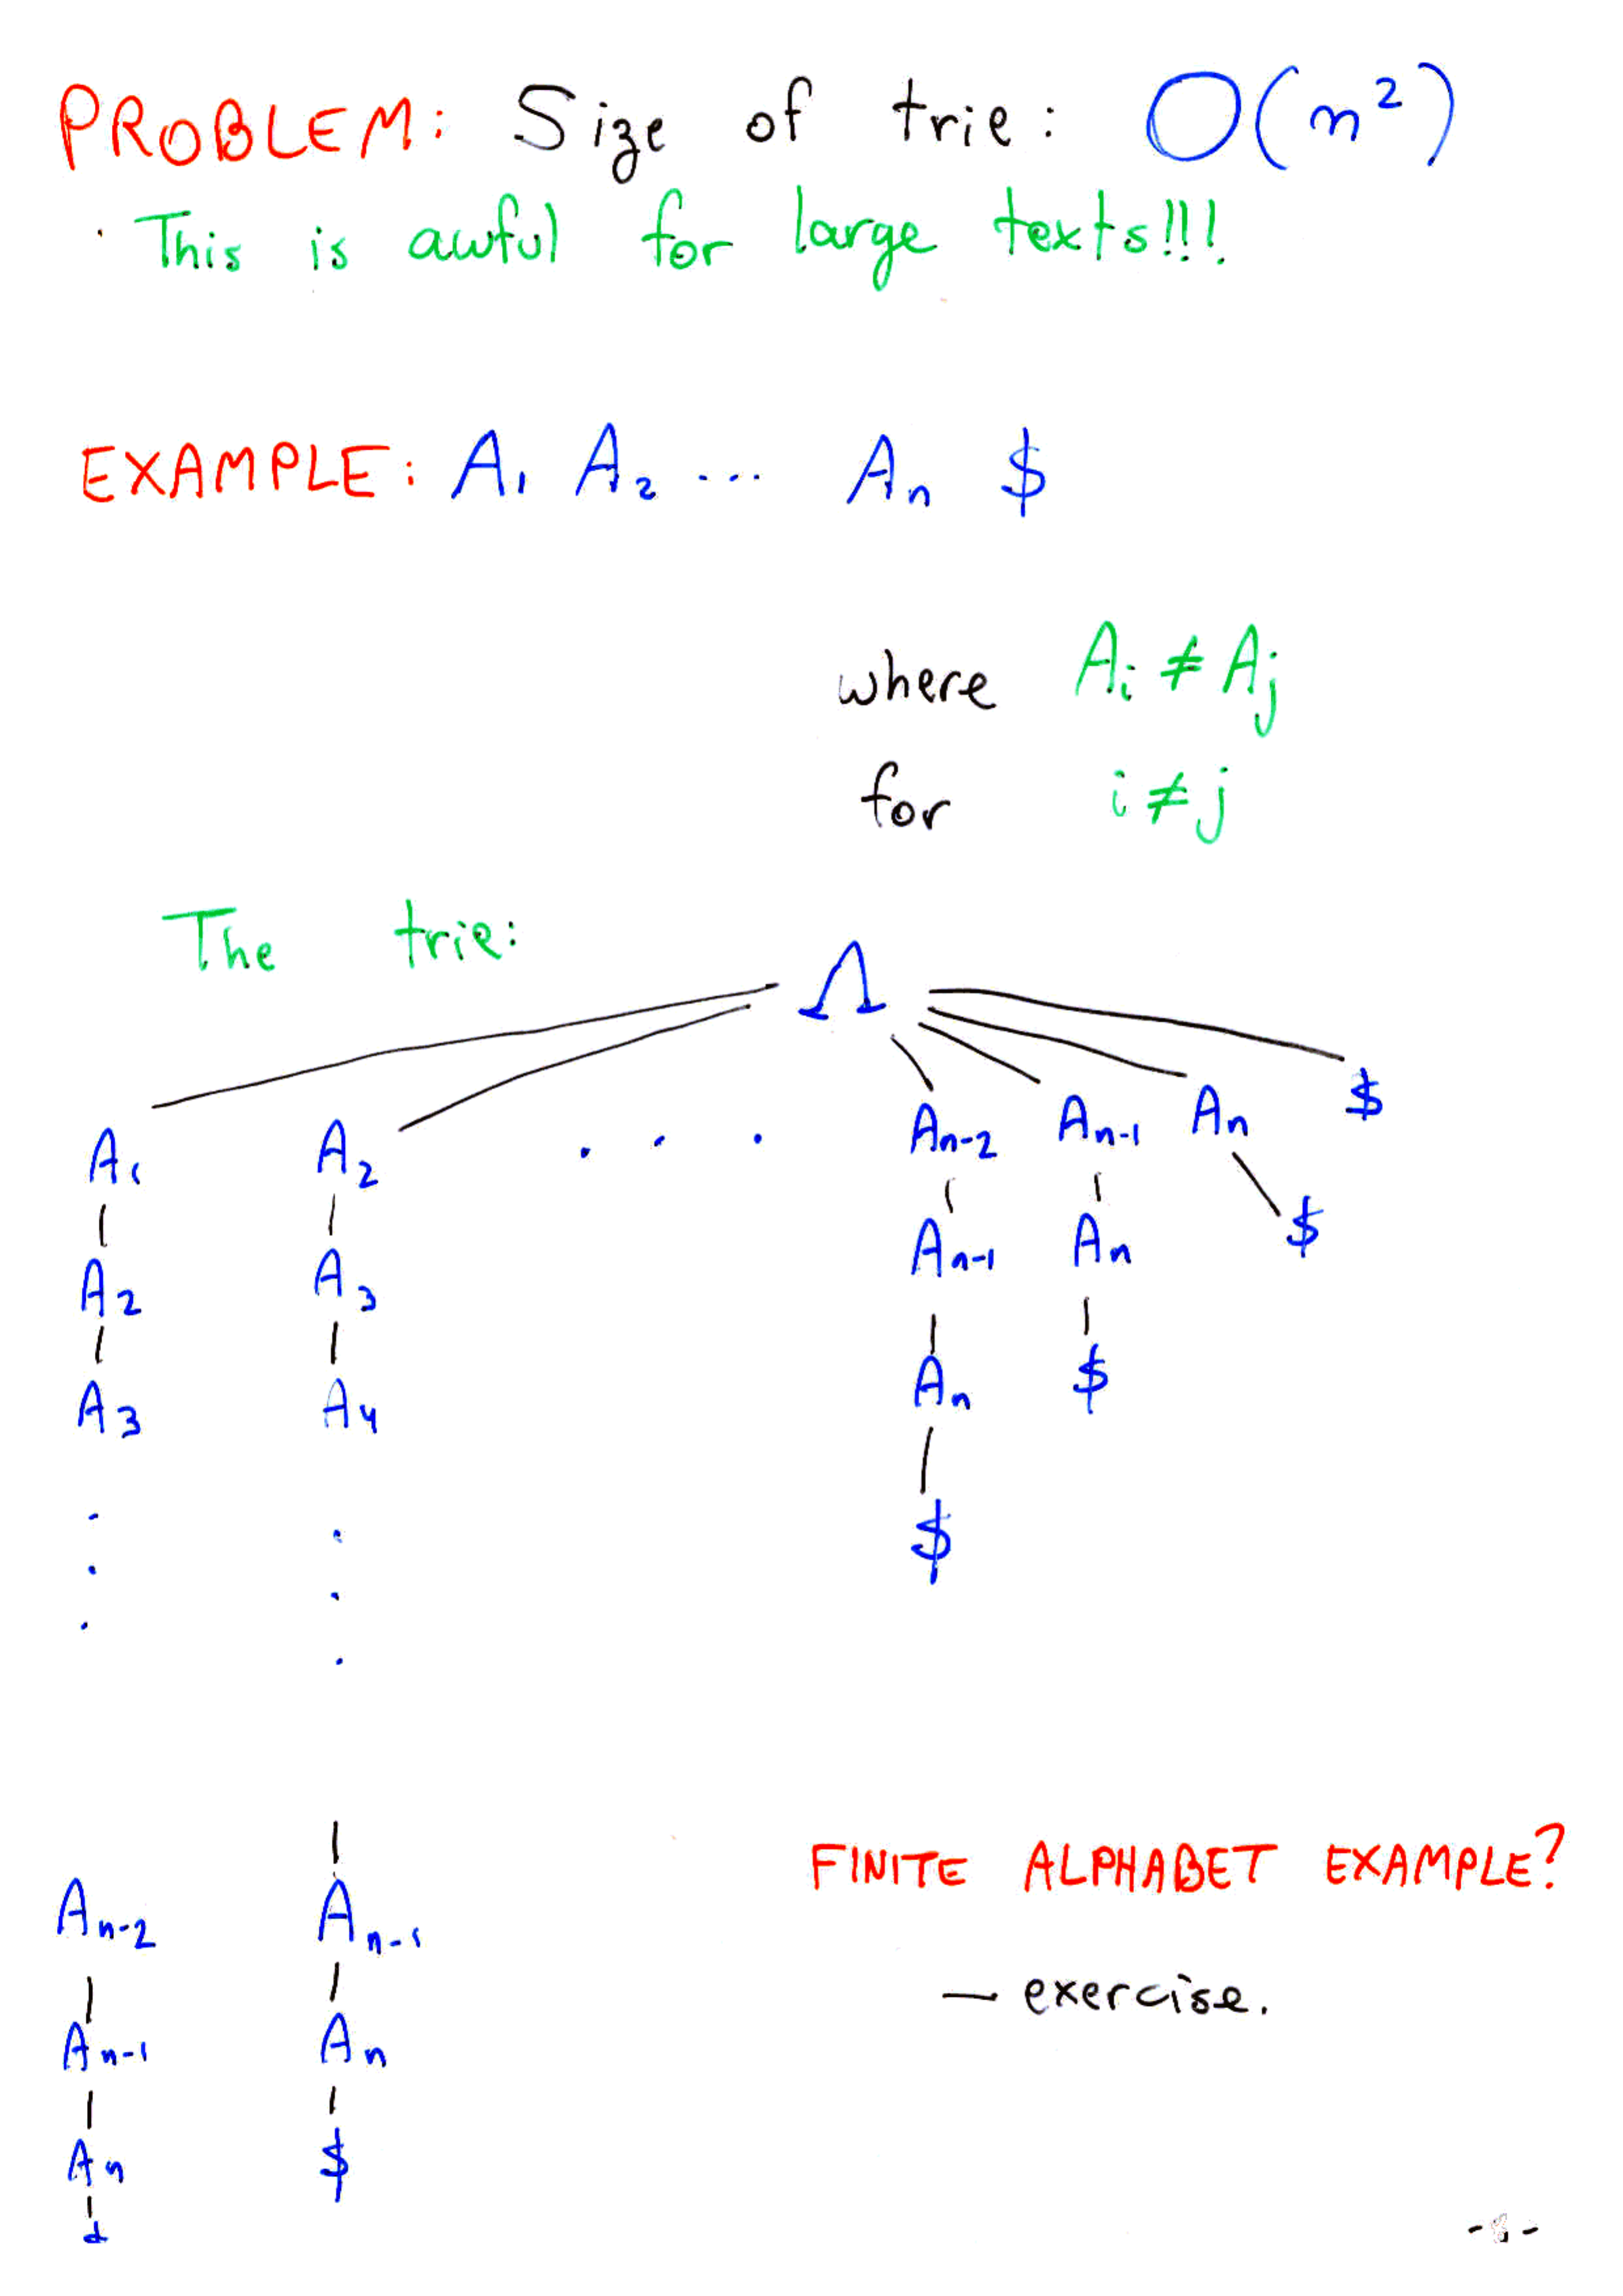 PROBLEM: Size of trie: O(n²)
· This is awful for large texts!!!
EXAMPLE: A₁ A₂ ... Aₙ $
where Aᵢ ≠ Aⱼ
for i ≠ j
The trie:
Λ
$
A₁ A₂ . . . Aₙ₋₂ Aₙ₋₁ Aₙ
A₂ A₃ Aₙ₋₁ Aₙ $
A₃ A₄ Aₙ $
$
FINITE ALPHABET EXAMPLE?
Aₙ₋₂ Aₙ₋₁
— exercise.
Aₙ₋₁ Aₙ
Aₙ $